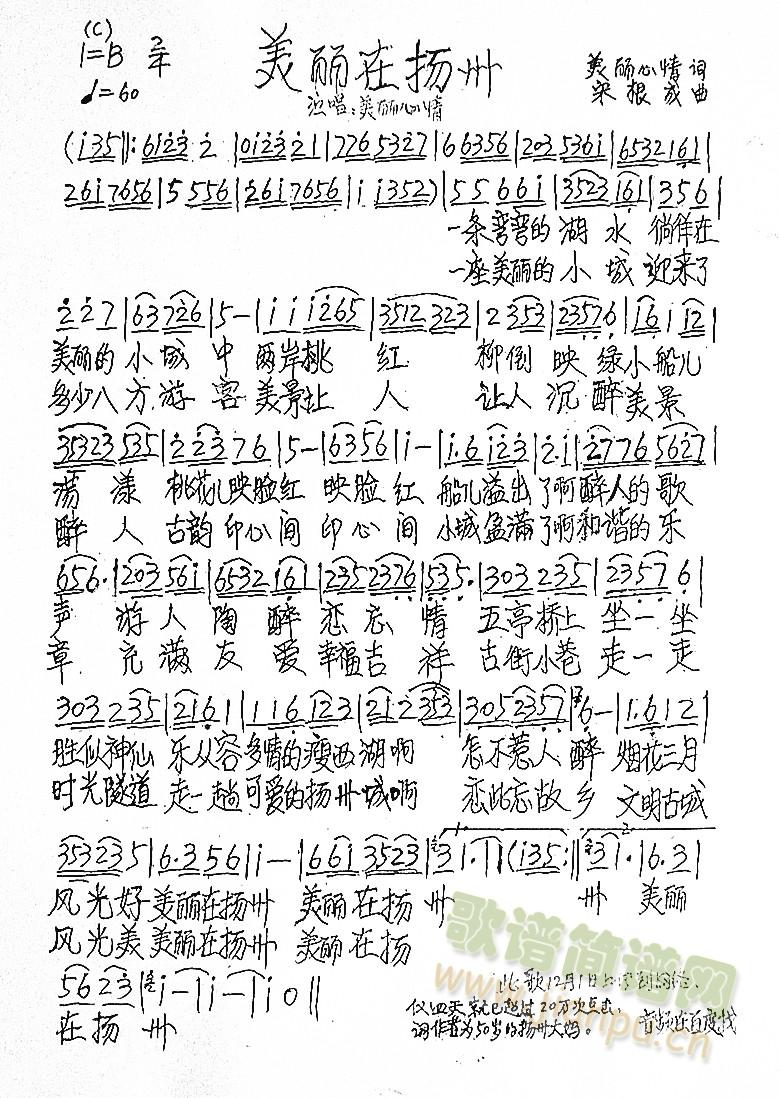 (C)
1=B 2/4
♩=60
美丽在扬州
演唱:美丽心情
美丽心情 词
宋根成 曲
(i35‖:6123 2|0123 21|776 5327|6 6356|203 536i|6532 161|
26i7656|5 556|26i7656|i i352)|55 66i|3523 161|356|
一条弯弯的湖水 徜徉在
一座美丽的小城 迎来了
227|63726|5-|iii1265|3512 323|2 353|23576|161 12|
美丽的小城中 两岸桃红 柳倒映绿小船儿
多少八方游客 美景让人 让人沉醉美景
35323 535|22376|5-|6356|i-|1.6123|2.i|27765627|
荡漾 桃花儿映脸红 映脸红 船儿溢出了啊醉人的歌
醉人 古韵印心间 印心间 小城盈满了啊和谐的乐
656.|203 56i|6532 161|2352376|535.|303 235|2357 6|
声 游人陶醉恋忘情 五亭桥上坐一坐
章 充满友爱幸福吉祥 古街小巷走一走
303 235|2161|116123|212 353|305 2357|6-|1.612|
胜似神仙 乐从容多情的瘦西湖啊 怎不惹人醉 烟花三月
时光隧道 走一趟可爱的扬州城啊 恋此忘故乡 文明古城
353235|6.356|i-|66i 3523|31.1|(i35:‖31.|6.3|
风光好美丽在扬州 美丽在扬州 州 美丽
风光美美丽在扬州 美丽在扬
5623|i-|i-|i0‖
在扬州
此歌12月1日
仅四天就已超过20万次点击,
词作者为50岁的扬州大妈。
音频在百度找
歌谱简谱网
www.jianpu.cn